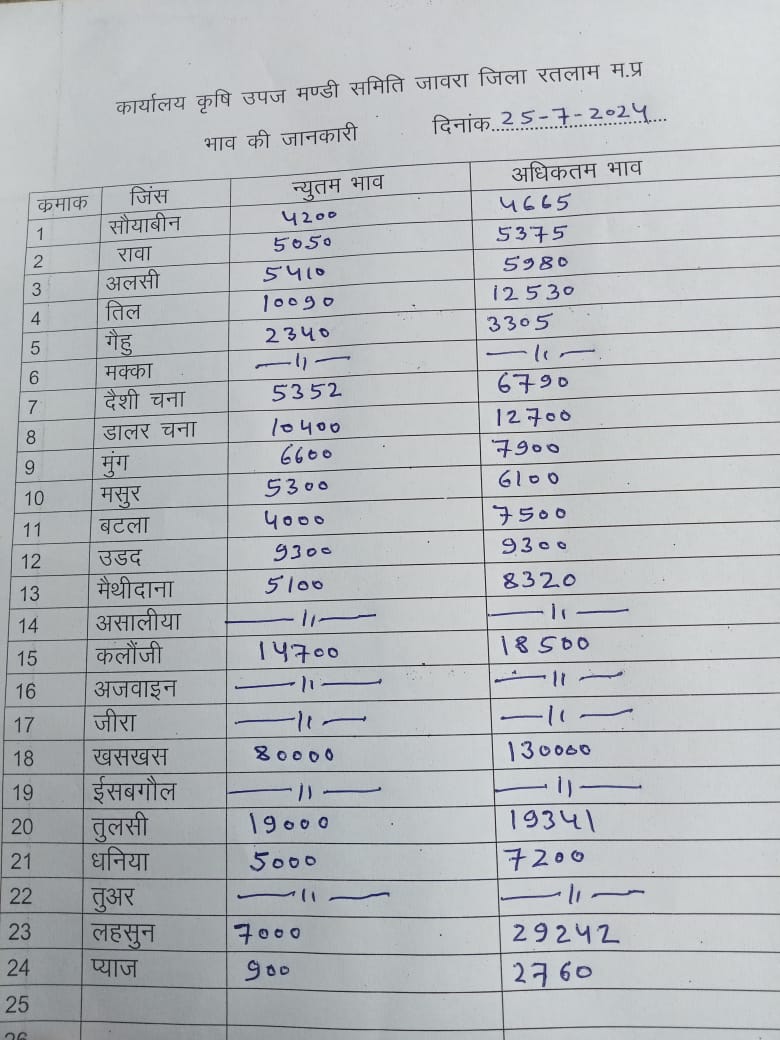 कार्यालय कृषि उपज मण्डी समिति जावरा जिला रतलाम म.प्र
भाव की जानकारी दिनांक 25-7-2024
कमाक जिंस न्युतम भाव अधिकतम भाव
1 सौयाबीन 4200 4665
2 रावा 5050 5375
3 अलसी 5410 5980
4 तिल 10090 12530
5 गैहु 2340 3305
6 मक्का —11— —11—
7 दैशी चना 5352 6790
8 डालर चना 10400 12700
9 मुंग 6600 7900
10 मसुर 5300 6100
11 बटला 4000 7500
12 उडद 9300 9300
13 मैथीदाना 5100 8320
14 असालीया —11— —11—
15 कलौंजी 14700 18500
16 अजवाइन —11— —11—
17 जीरा —11— —11—
18 खसखस 80000 130000
19 ईसबगौल —11— —11—
20 तुलसी 19000 19341
21 धनिया 5000 7200
22 तुअर —11— —11—
23 लहसुन 7000 29242
24 प्याज 900 2760
25
26